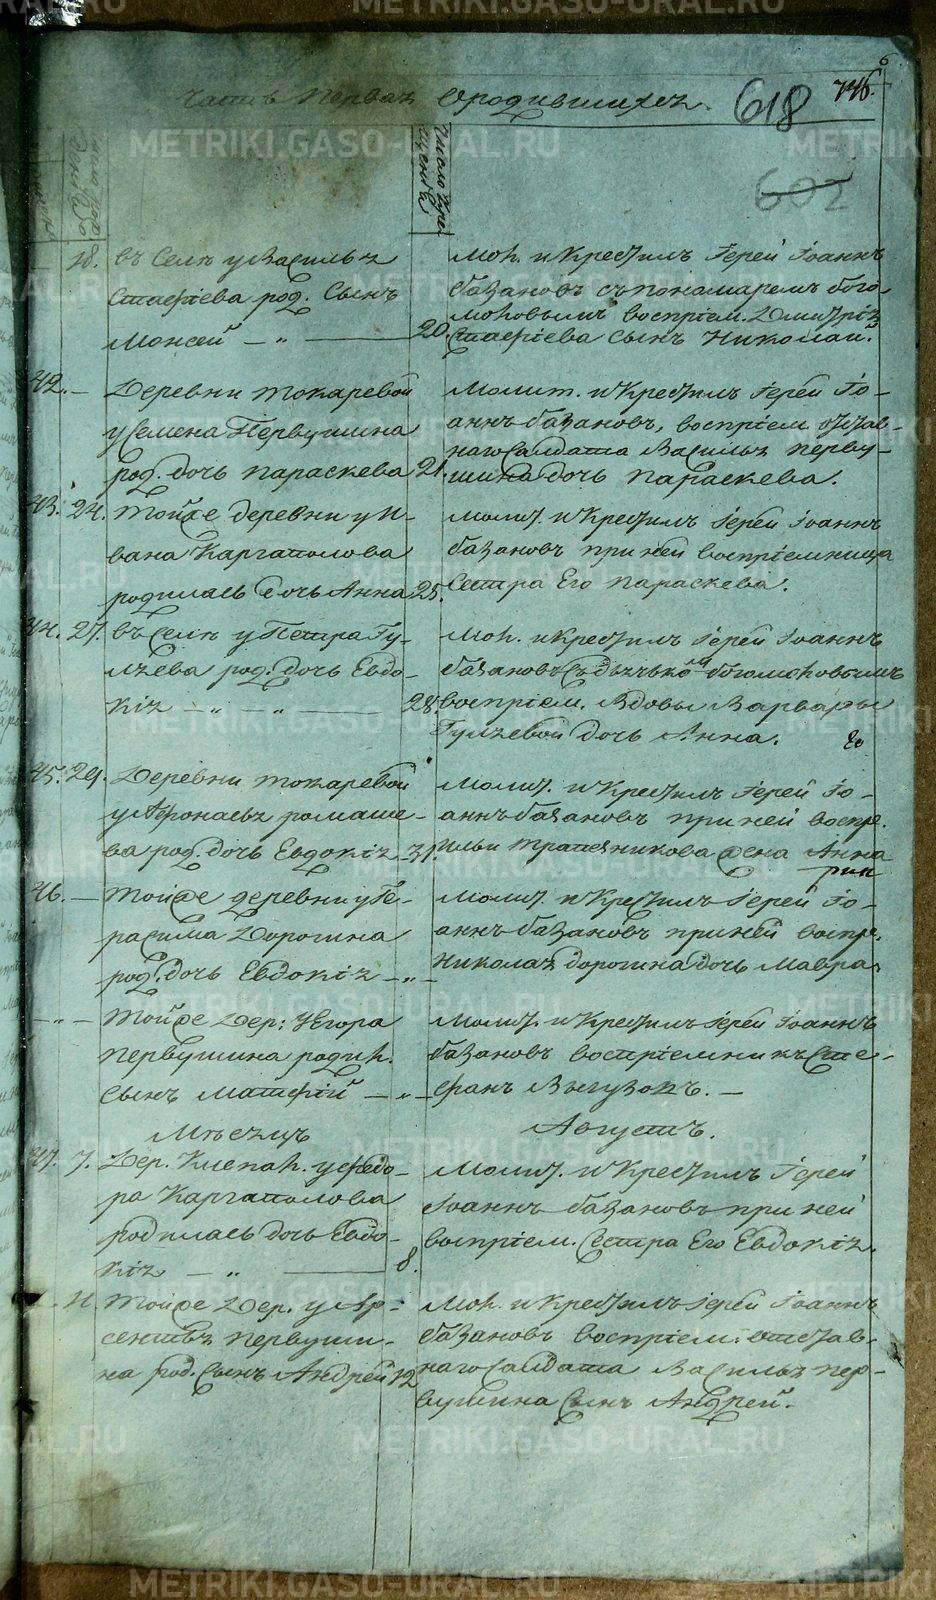 Часть первая о родившихся.
618
746.
6
602
Число рож
дения
Число кре
щения
18. въ Селѣ у Василья
Стафіева род. Сынъ
Моисей — „ — 20.
Мол. и Крестилъ Іерей Іоаннъ
Базановъ съ пономаремъ Бого
моловымъ воспріем. Димитрія
Стафіева Сынъ Николай.
42. — Деревни Токаревой
у Семена Первушина
род. дочь Параскева 21.
Молит. и Крестилъ Іерей Іо-
аннъ Базановъ, воспріем отстав-
наго Салдата Василья Перву-
шина дочь Параскева.
43. 24. Тойже деревни у И-
вана Каргаполова
родилась дочь Анна 25.
Молит. и Крестилъ Іерей Іоаннъ
Базановъ при ней воспріемница
Сестра Его Параскева.
44. 27. въ Селѣ у Петра Гу-
ляева род. дочь Евдо-
кія — „ — „ — 28.
Мол. и Крестилъ Іерей Іоаннъ
Базановъ съ дьячькомъ Богомоловымъ
воспріем. Вдовы Варвары
Гуляевой дочь Анна.
45. 29. Деревни Токаревой
у Афонасья Ромаше-
ва род. дочь Евдокія 31.
Молит. и Крестилъ Іерей Іо-
аннъ Базановъ при ней воспре.
Ильи Трапезникова жена Анна
46. — Тойже деревни у Ге-
расима Дорогина
род. дочь Евдокія — „ —
Молит. и Крестилъ Іерей Іо-
аннъ Базановъ при ней воспре.
Николая Дорогина дочь Мавра.
— „ — Тойже Дер: у Егора
Первушина родил.
Сынъ Матфій — „ —
Молит. и Крестилъ Іерей Іоаннъ
Базановъ воспріемникъ Сте-
фанъ
Мѣсяцъ Августъ.
47. 7. Дер. у Федо-
ра Каргаполова
родилась дочь Евдо-
кія — „ — 8.
Молит. и Крестилъ Іерей
Іоаннъ Базановъ при ней
воспріем. Сестра Его Евдокія.
11. Тойже Дер. у Ар-
сентья Первуши-
на род. Сынъ Андрей 12
Мол. и Крестилъ Іерей Іоаннъ
Базановъ воспріем: отстав-
наго Салдата Василья Пер-
вушина Сынъ Андрей.
METRIKI.GASO-URAL.RU